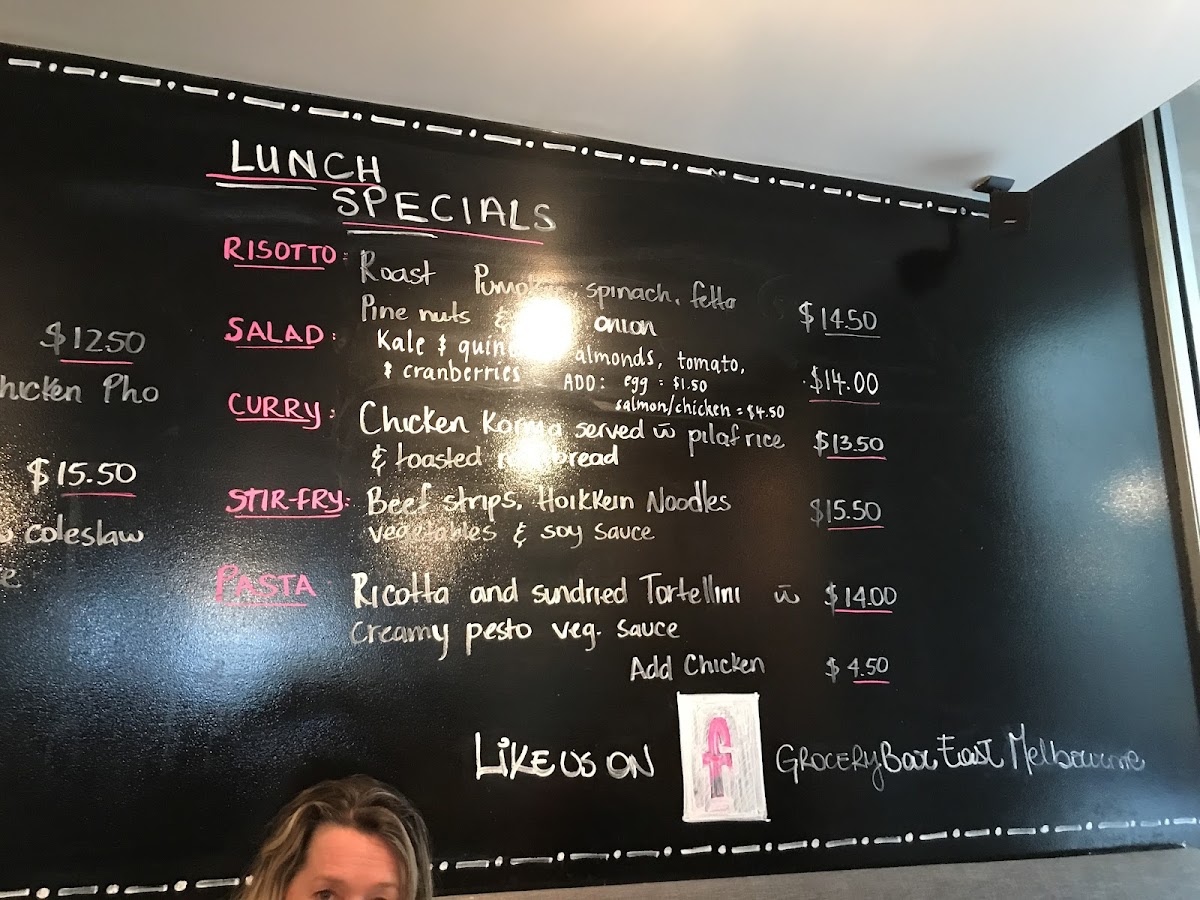 LUNCH
SPECIALS
RISOTTO: Roast spinach, fetta
Pine nuts & onion $14.50
SALAD: Kale & almonds, tomato,
& cranberries ADD: egg = $1.50 $14.00
salmon/chicken = $4.50
CURRY: Chicken Korma served w̄ pilaf rice $13.50
& toasted bread
STIR-FRY: Beef strips, Hoikkein Noodles $15.50
vegetables & soy sauce
PASTA Ricotta and sundried Tortellini w̄ $14.00
creamy pesto veg. sauce
Add Chicken $4.50
LIKE US ON f GROCERYBar East Melbourne
$12.50
Chicken Pho
$15.50
w coleslaw